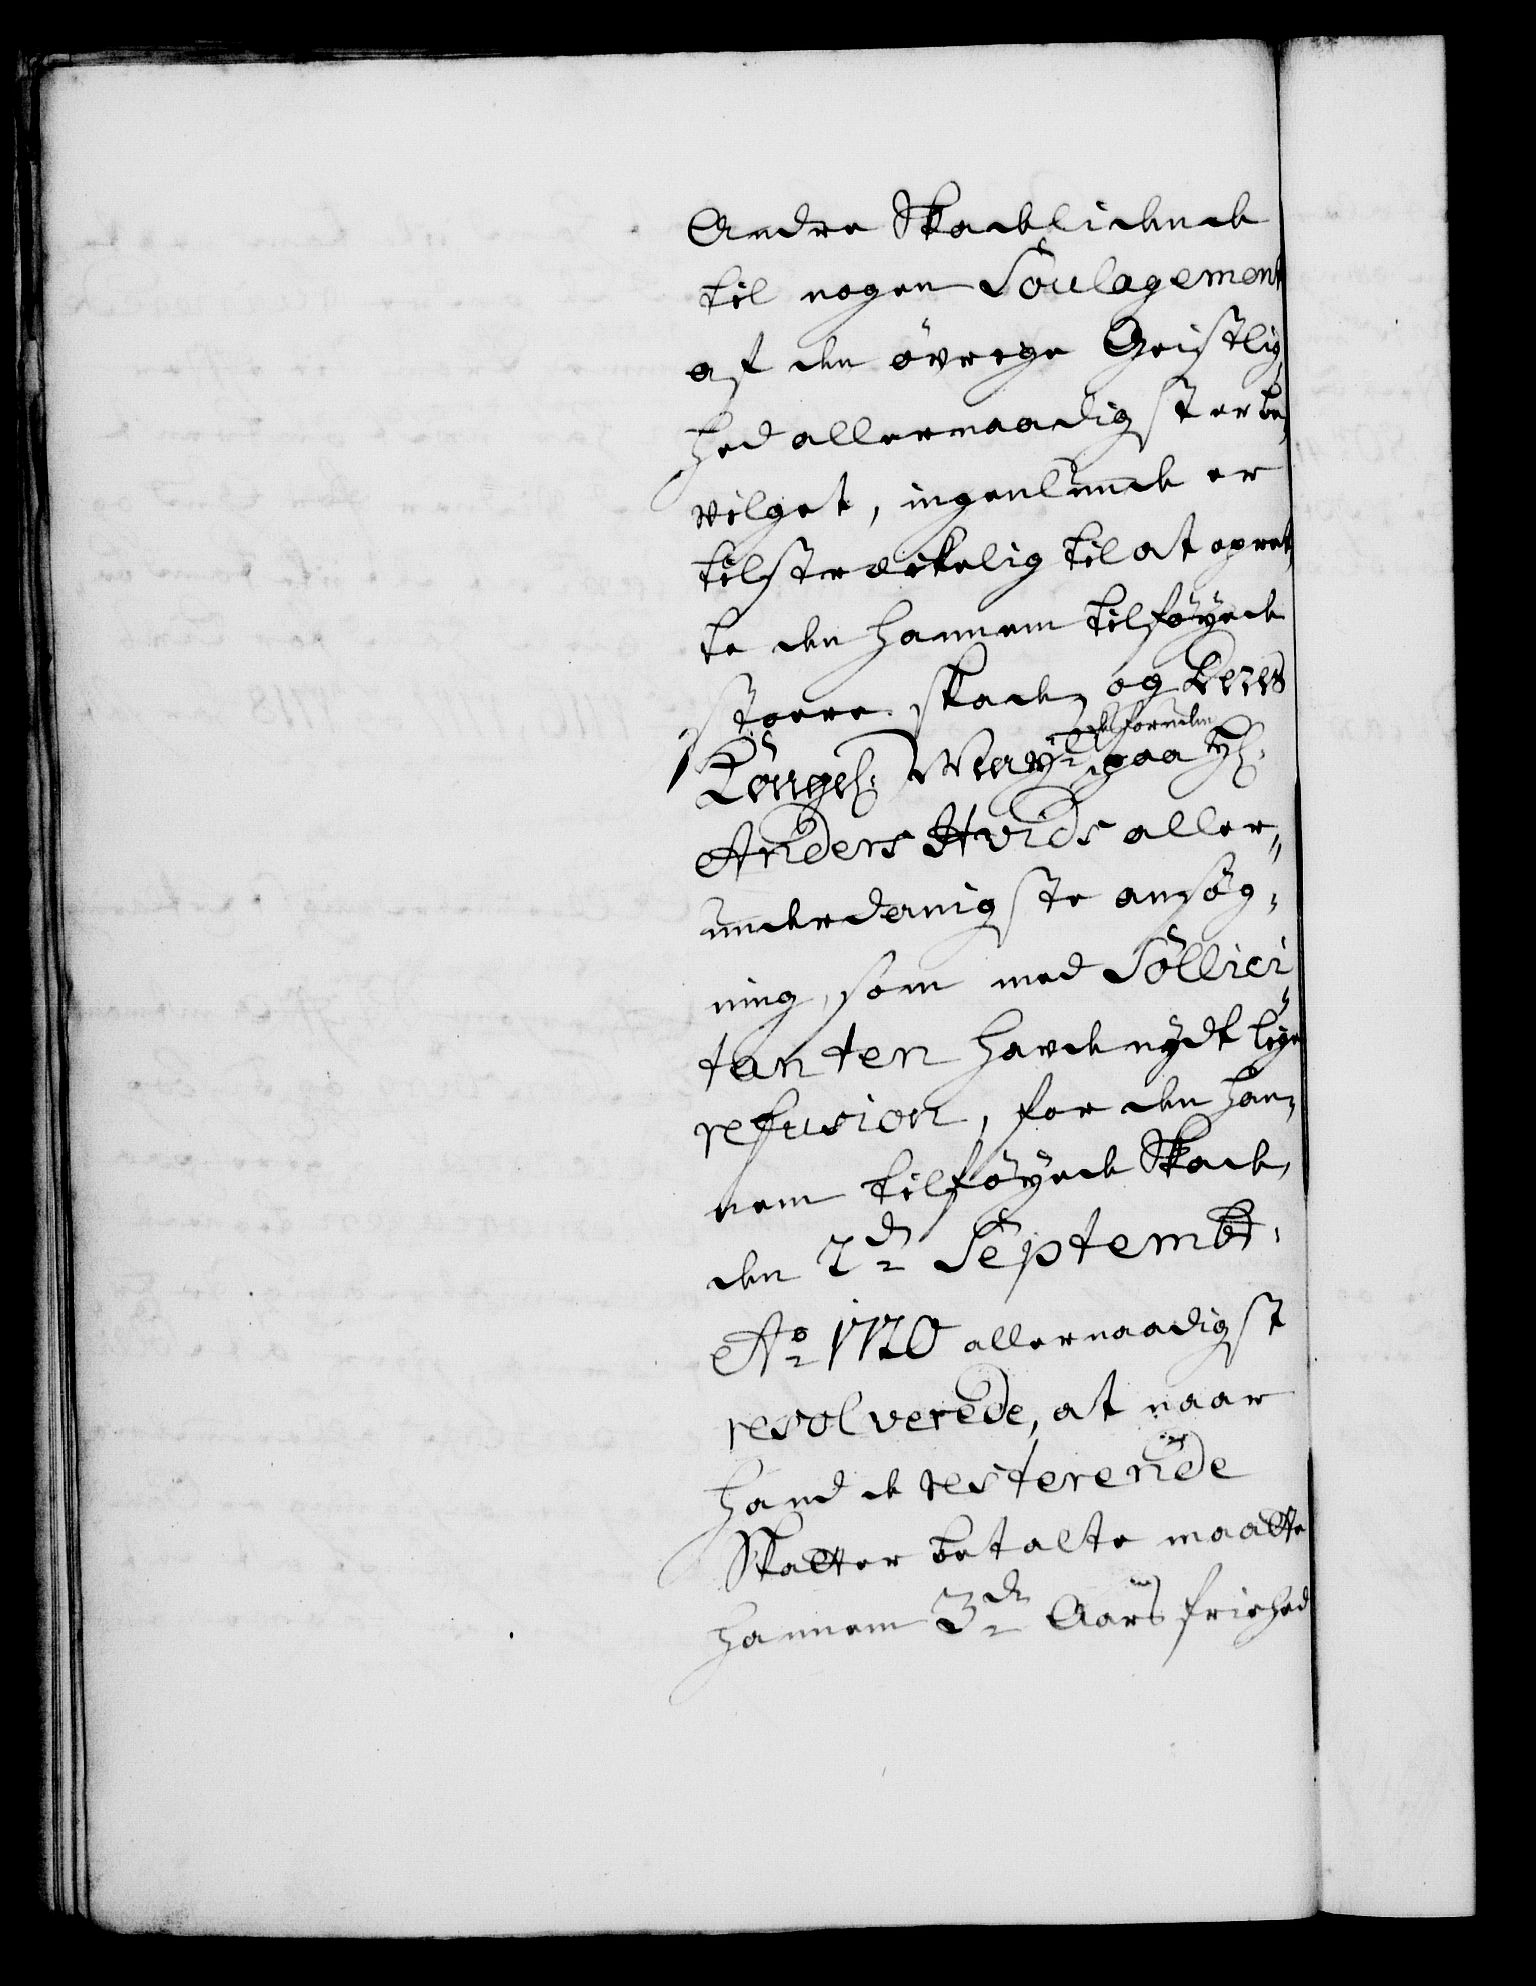 Andre Skadelidende
til nogen Soulagement
af den övrige Geistlig,
hed allernaadigst er be,
vilget, ingenlunde er
tilstreckelig til at opret,
te den hannem tilföyede
stoere skade, og Deres
Kongel: Mayt. desforuden paa Hr.
Anders Hvids aller,
underdanigste ansög,
ning, som med Sollici,
tanten havde nydt lige
refusion, for den han,
nem tilföyede Skade,
den 2de Septembr.
Ao 1720 allernaadigst
resolverede, at naar
hand de resterende
Skatter betalte maatte
hannem 3de Aars friehed